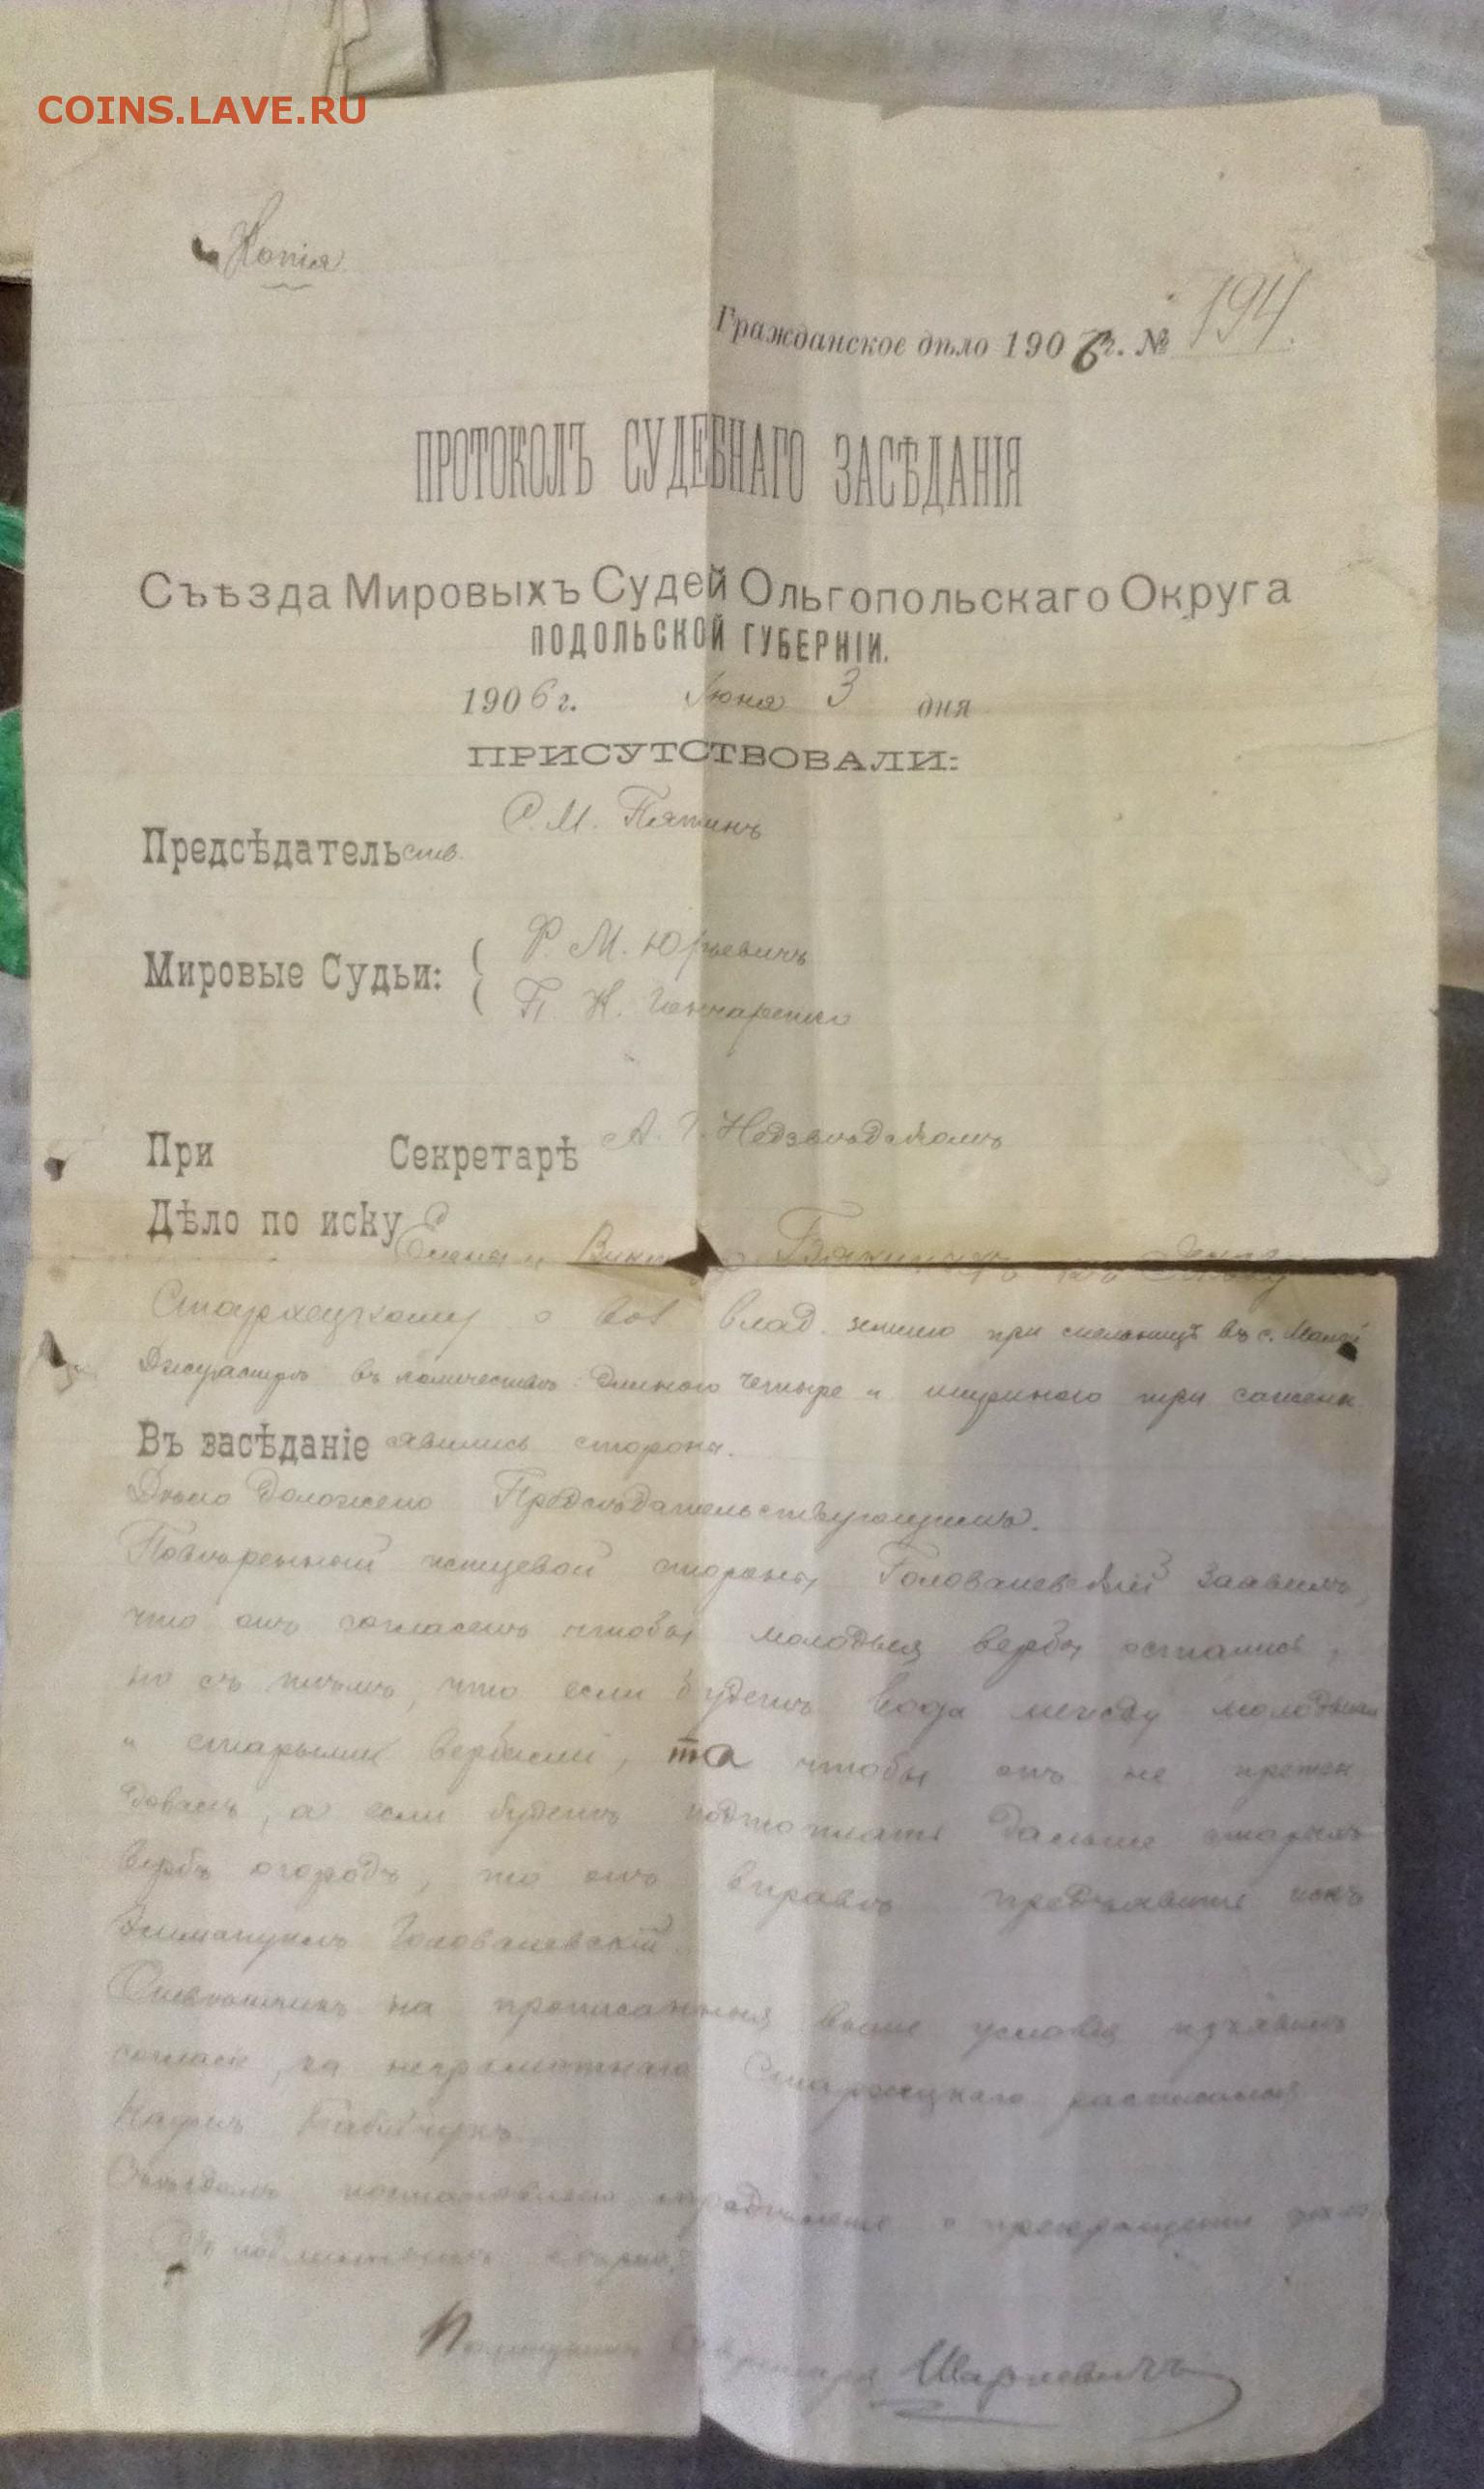 COINS.LAVE.RU
Копія
Гражданское дѣло 1906 г. № 194.
ПРОТОКОЛЪ СУДЕБНАГО ЗАСѢДАНІЯ
Съѣзда Мировыхъ Судей Ольгопольскаго Округа
ПОДОЛЬСКОЙ ГУБЕРНІИ.
1906 г. Іюня 3 дня
ПРИСУТСТВОВАЛИ:
С. М. Пятинъ
Предсѣдательств.
Мировые Судьи: { Ф. М. Юрьевичъ
П. К. Гончаренко
При Секретарѣ А. Г. Недзвѣдскомъ
Дѣло по иску
о вод влад. землею при мельницѣ въ с. Малой
въ количествѣ длиною четыре и шириною три сажени.
Въ засѣданіе явились стороны.
Дѣло доложено Предсѣдательствующимъ.
Повѣренный истцевой стороны Голованевскій заявилъ,
что онъ согласенъ чтобы молодыя вербы остались,
но съ тѣмъ, что если будетъ вода между молодыми
и старыми вербами, то чтобы онъ не претен
довалъ, а если будетъ подтоплять дальше старыхъ
вербъ огородъ, то онъ вправѣ предъявить искъ
Голованевскій
Отвѣтчикъ на прописанныя выше условія изъявилъ
согласіе, за неграмотнаго расписался
Съѣздомъ постановлено опредѣленіе о прекращеніи дѣла
Секретаря